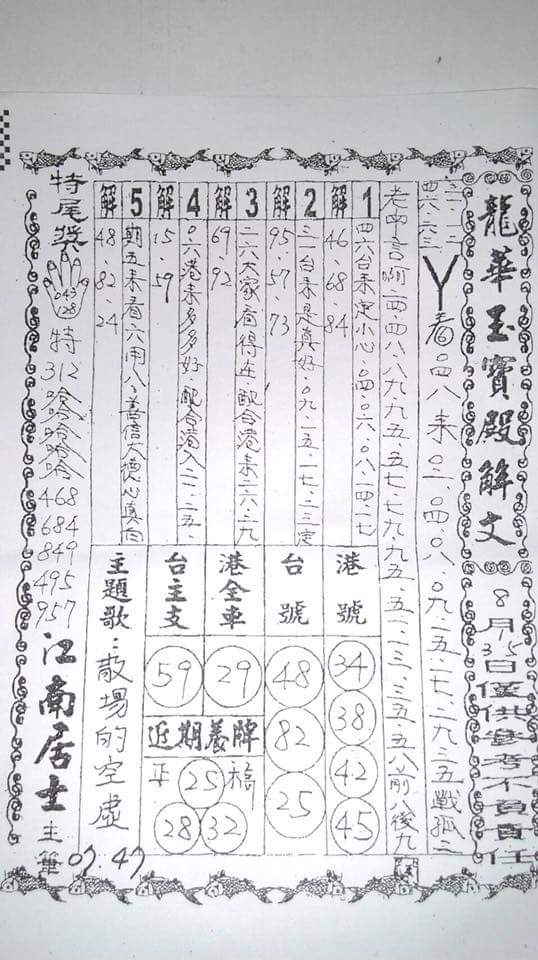 龍華玉寶殿解文
8月3.5日僅供參考不負責任
丫看.四八來.0二.0四.0八.0九.二五.一七.二九.三五戰孤二
四六.六三
老四言啊一四四八.八九.九五.五七.七九.九五.五一.二三.三五.五八前八後九
1
四六台來定小心.0四.0六.0八.一四.一七
解
46.68.84
2
三一台來是真好.0九.一五.一七.二三定
解
95.57.73
3
二六大家看得在.配合港來二六.二九
解
69.92
4
0六港來多多好.配合港入二一.二五.
解
15.59
5
期五來看六用八.善信大德心真向
解
48.82.24
港號
34
38
42
45
台號
48
82
25
港全車
29
台主支
59
近期養牌
平
25
福
28
32
主題歌：散場的空虛
特尾獎
043
128
特
312
哈哈哈哈
468
684
849
495
957
江南居士主筆
07.47